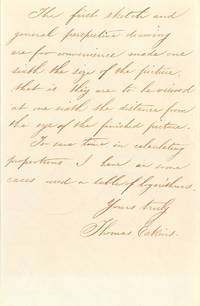 The first sketch and
general perspective drawing
are for convenience made one
sixth the size of the picture,
that is they are to be viewed
at one sixth the distance from
the eye of the finished picture.
To save time in calculating
proportions I have in some
cases used a table of logarithms.
Yours truly
Thomas Eakins.